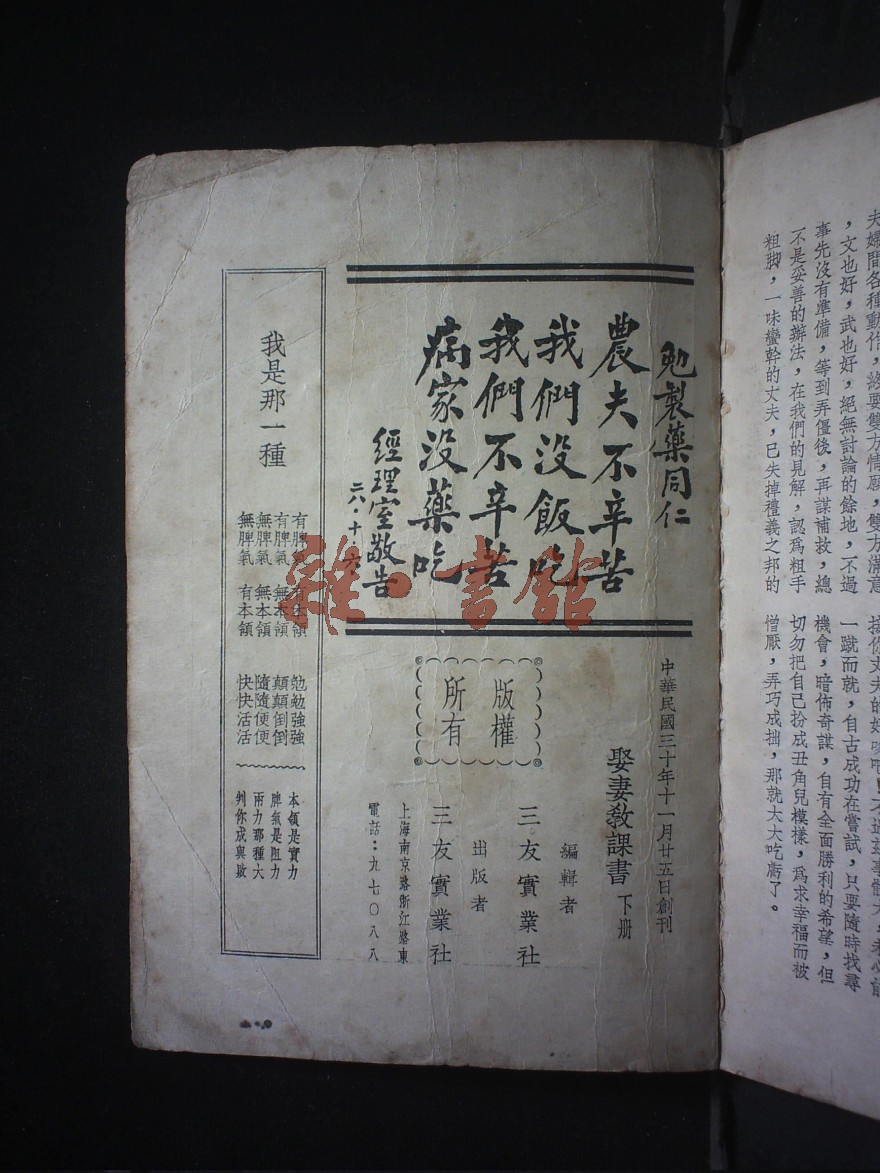 夫婦間各種動作，終要雙方情愿，雙方滿意
，文也好，武也好，絕無討論的餘地，不過
事先沒有準備，等到弄僵後，再謀補救，總
不是妥善的辦法，在我們的見解，認爲粗手
粗脚，一味蠻幹的丈夫，已失掉禮義之邦的
一蹴而就，自古成功在嘗試，只要隨時找尋
機會，暗佈奇謀，自有全面勝利的希望，但
切勿把自己扮成丑角兒模樣，爲求幸福而被
憎厭，弄巧成拙，那就大大吃虧了。
勉製藥同仁
農夫不辛苦
我們沒飯吃
我們不辛苦
病家沒藥吃
經理室敬告
廿八·十·六
中華民國三十年十一月廿五日創刊
娶妻教課書 下册
編輯者
三友實業社
出版者
三友實業社
上海南京路浙江路東
電話：九七〇八八
版權
所有
我是那一種
有脾氣 有本領 勉勉強強
有脾氣 無本領 顛顛倒倒
無脾氣 無本領 隨隨便便
無脾氣 有本領 快快活活
本領是實力
脾氣是阻力
兩力那種大
判你成與敗
雜·書館